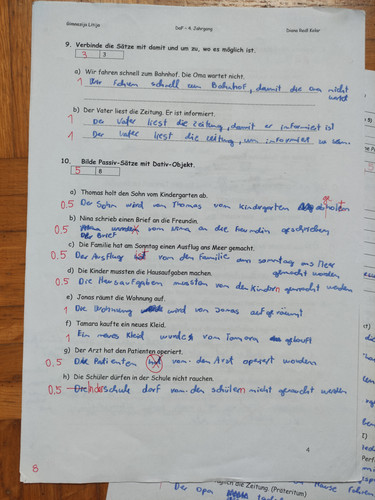 Gimnazija Litija DaF - 4. Jahrgang
9. Verbinde die Sätze mit damit und um zu, wo es möglich ist.
3 3
a) Wir fahren schnell zum Bahnhof. Die Oma wartet nicht.
1 Wir fahren schnell zum Bahnhof, damit die Oma nicht
wartet
b) Der Vater liest die Zeitung. Er ist informiert.
1 Der Vater liest die Zeitung, damit er informiert ist
1 Der Vater liest die Zeitung, um informiert zu sein.
10. Bilde Passiv-Sätze mit Dativ-Objekt.
5 8
a) Thomas holt den Sohn vom Kindergarten ab.
0.5 Der Sohn wird von Thomas vom kindergarten
b) Nina schrieb einen Brief an die Freundin.
0.5 von Nina an die freundin geschrieben
Der Brief
c) Die Familie hat am Sonntag einen Ausflug ans Meer gemacht.
0.5 Der Ausflug ist von der familie am sonntag ans Meer
gemacht worden
d) Die Kinder mussten die Hausaufgaben machen.
0.5 Die Hausaufgaben mussten von den Kindern gemacht werden
e) Jonas räumt die Wohnung auf.
1 Die Wohnung wird von Jonas aufgeräumt
f) Tamara kaufte ein neues Kleid.
1 Ein neues Kleid wurde von Tamara gekauft
g) Der Arzt hat den Patienten operiert.
0.5 Die Patienten von den Arzt operiert worden
h) Die Schüler dürfen in der Schule nicht rauchen.
0.5 schule darf von den schülern nicht geraucht werden
4
8
die Zeitung. (Präteritum)
Der Opa